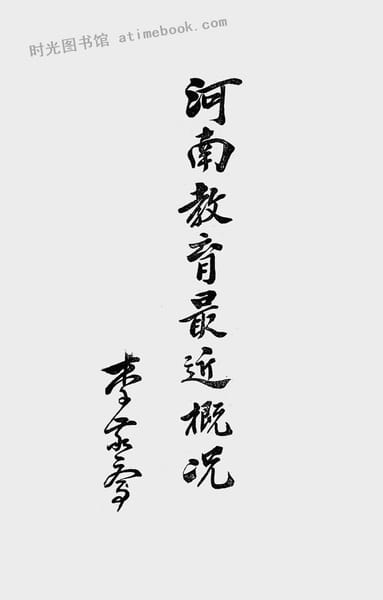 时光图书馆 atimebook.com
河南教育最近概况
李敬斋